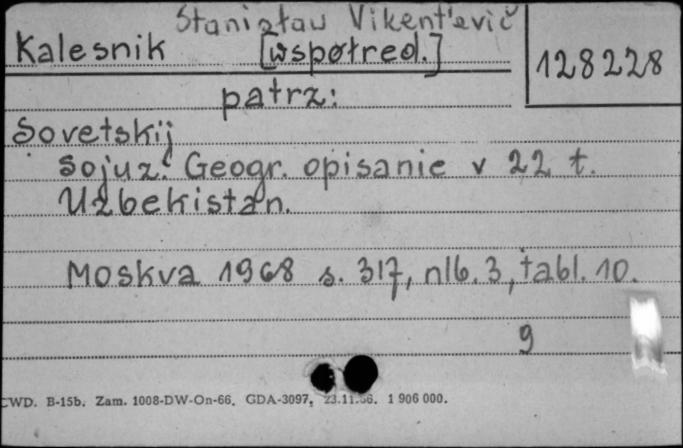 Stanisław Vikent'evič
Kalesnik [współred.]
128228
patrz:
Sovetskij
Sojuz. Geogr. opisanie v 22 t.
Uzbekistan.
Moskva 1968 s. 317, nlb. 3, tabl. 10.
9
CWD. B-15b. Zam. 1008-DW-On-66. GDA-3097, 23.11.66. 1 906 000.